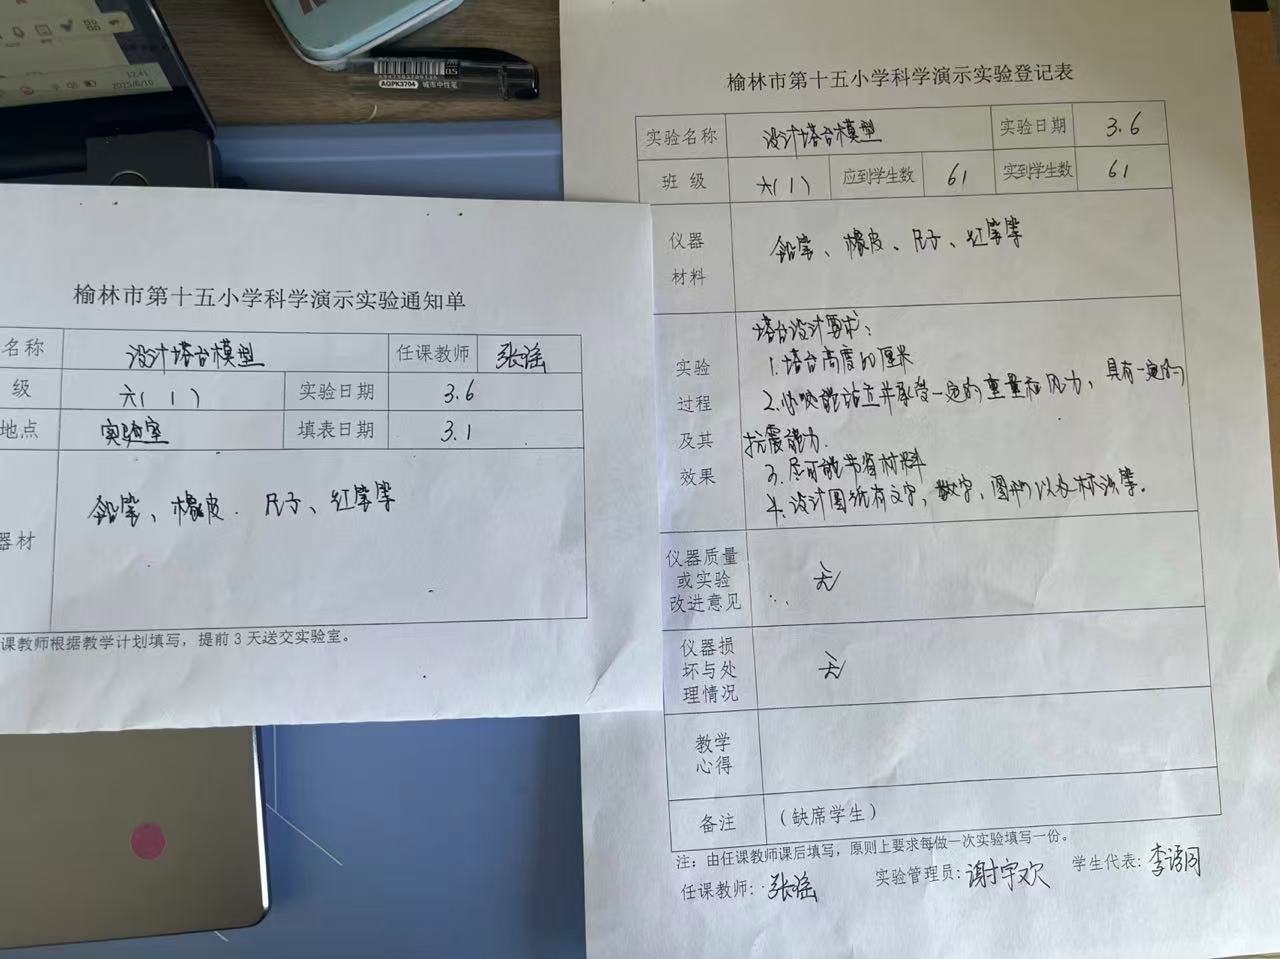 12:41
2025/6/10
0.5
AGPK3704 城市中性笔
榆林市第十五小学科学演示实验通知单
名称 设计塔台模型 任课教师 张瑶
级 六(1) 实验日期 3.6
地点 实验室 填表日期 3.1
器材 铅笔、橡皮、尺子、红笔等
课教师根据教学计划填写，提前3天送交实验室。
榆林市第十五小学科学演示实验登记表
实验名称 设计塔台模型 实验日期 3.6
班 级 六(1) 应到学生数 61 实到学生数 61
仪器
材料
铅笔、橡皮、尺子、红笔等
实验
过程
及其
效果
塔台设计要求：
1.塔台高度60厘米
2.必须能站立并承受一定的重量和风力，具有一定的
抗震能力.
3.尽可能节省材料
4.设计图纸有文字，数字，图形以及标注等.
仪器质量
或实验
改进意见
无
仪器损
坏与处
理情况
无
教学
心得
备注 （缺席学生）
注：由任课教师课后填写，原则上要求每做一次实验填写一份。
任课教师：张瑶 实验管理员：谢宇欢 学生代表：李语同